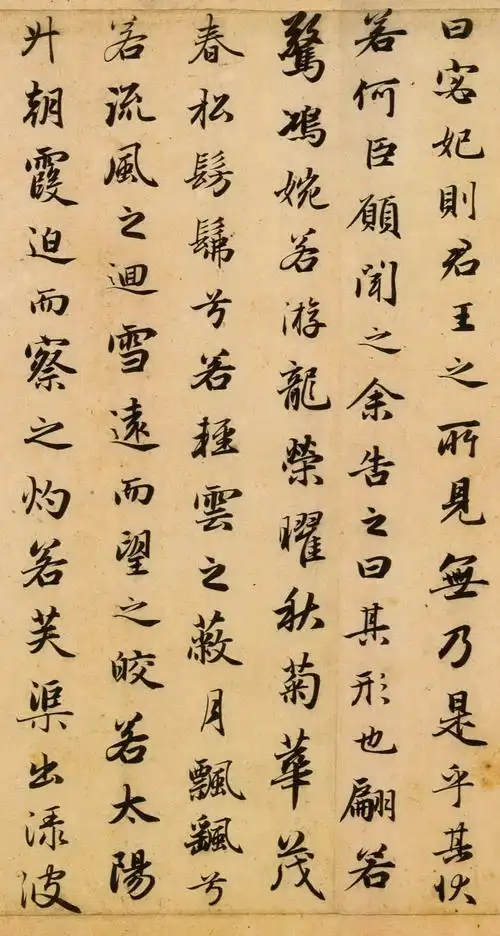 曰宓妃則君王之所見無乃是乎其状
若何臣願聞之余告之曰其形也翩若
驚鴻婉若游龍榮曜秋菊華茂
春松髣髴兮若輕雲之蔽月飄飖兮
若流風之迴雪遠而望之皎若太陽
升朝霞迫而察之灼若芙渠出淥波